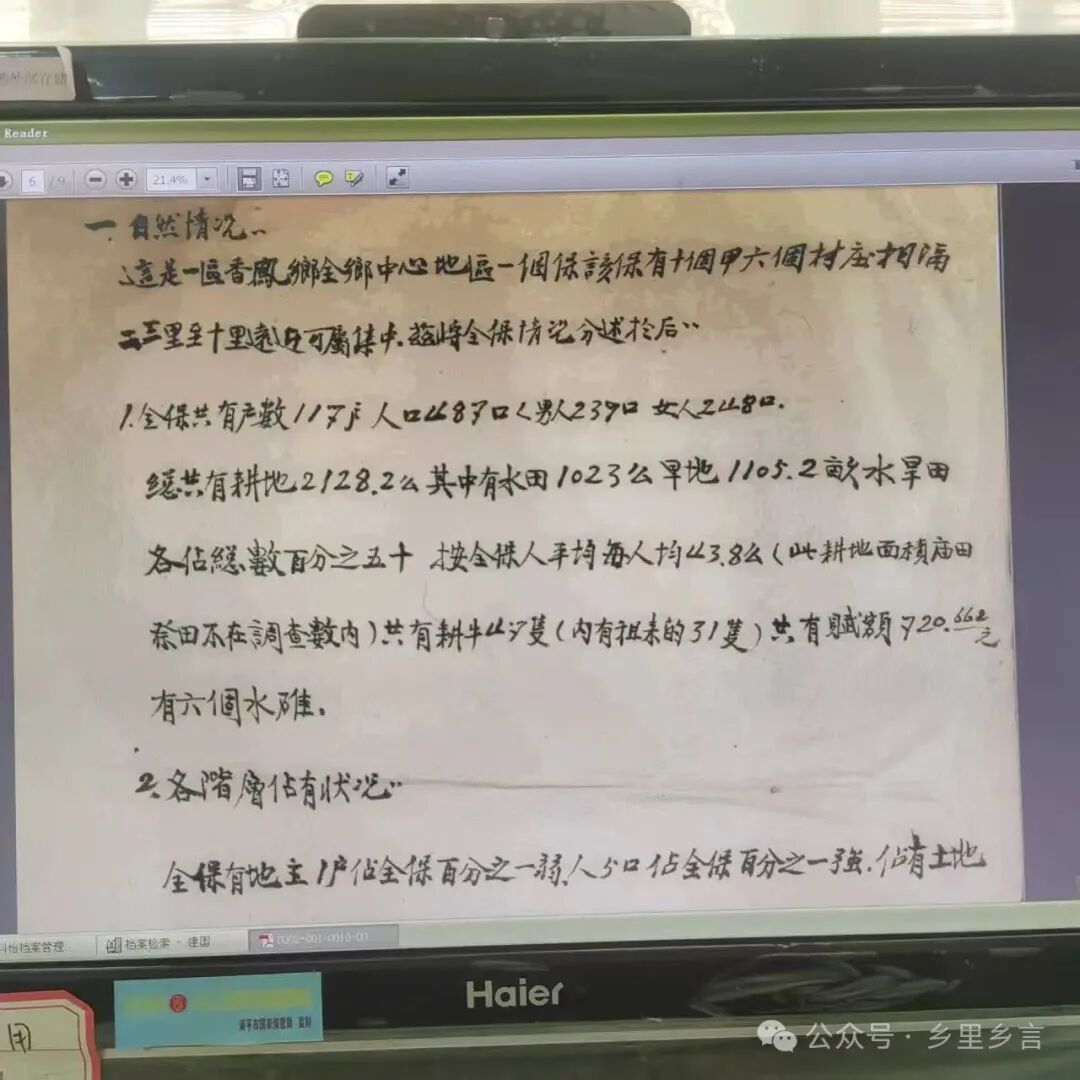 Reader
6 / 9
21.4%
一.自然情况..
這是一區香鳳鄉全鄉中心地區一個保該保有十個甲六個村庄相隔
二三里至十里遠近可屬集中.茲將全保情况分述於后..
1.全保共有戶數117户人口487口(男人239口 女人248口.
總共有耕地2128.2么其中有水田1023么旱地1105.2畝水旱田
各佔總數百分之五十 按全保人平均每人均43.8么(此耕地面積庙田
祭田不在調查數内)共有耕牛47隻(内有租来的31隻)共有賦額720.662元
有六個水碓.
2.各階層佔有状况..
全保有地主1户佔全保百分之一弱.人5口佔全保百分之一強.佔有土地
科怡档案管理
档案检索 - 建国
0002-001-0010-00
Haier
用
监制
公众号·乡里乡言